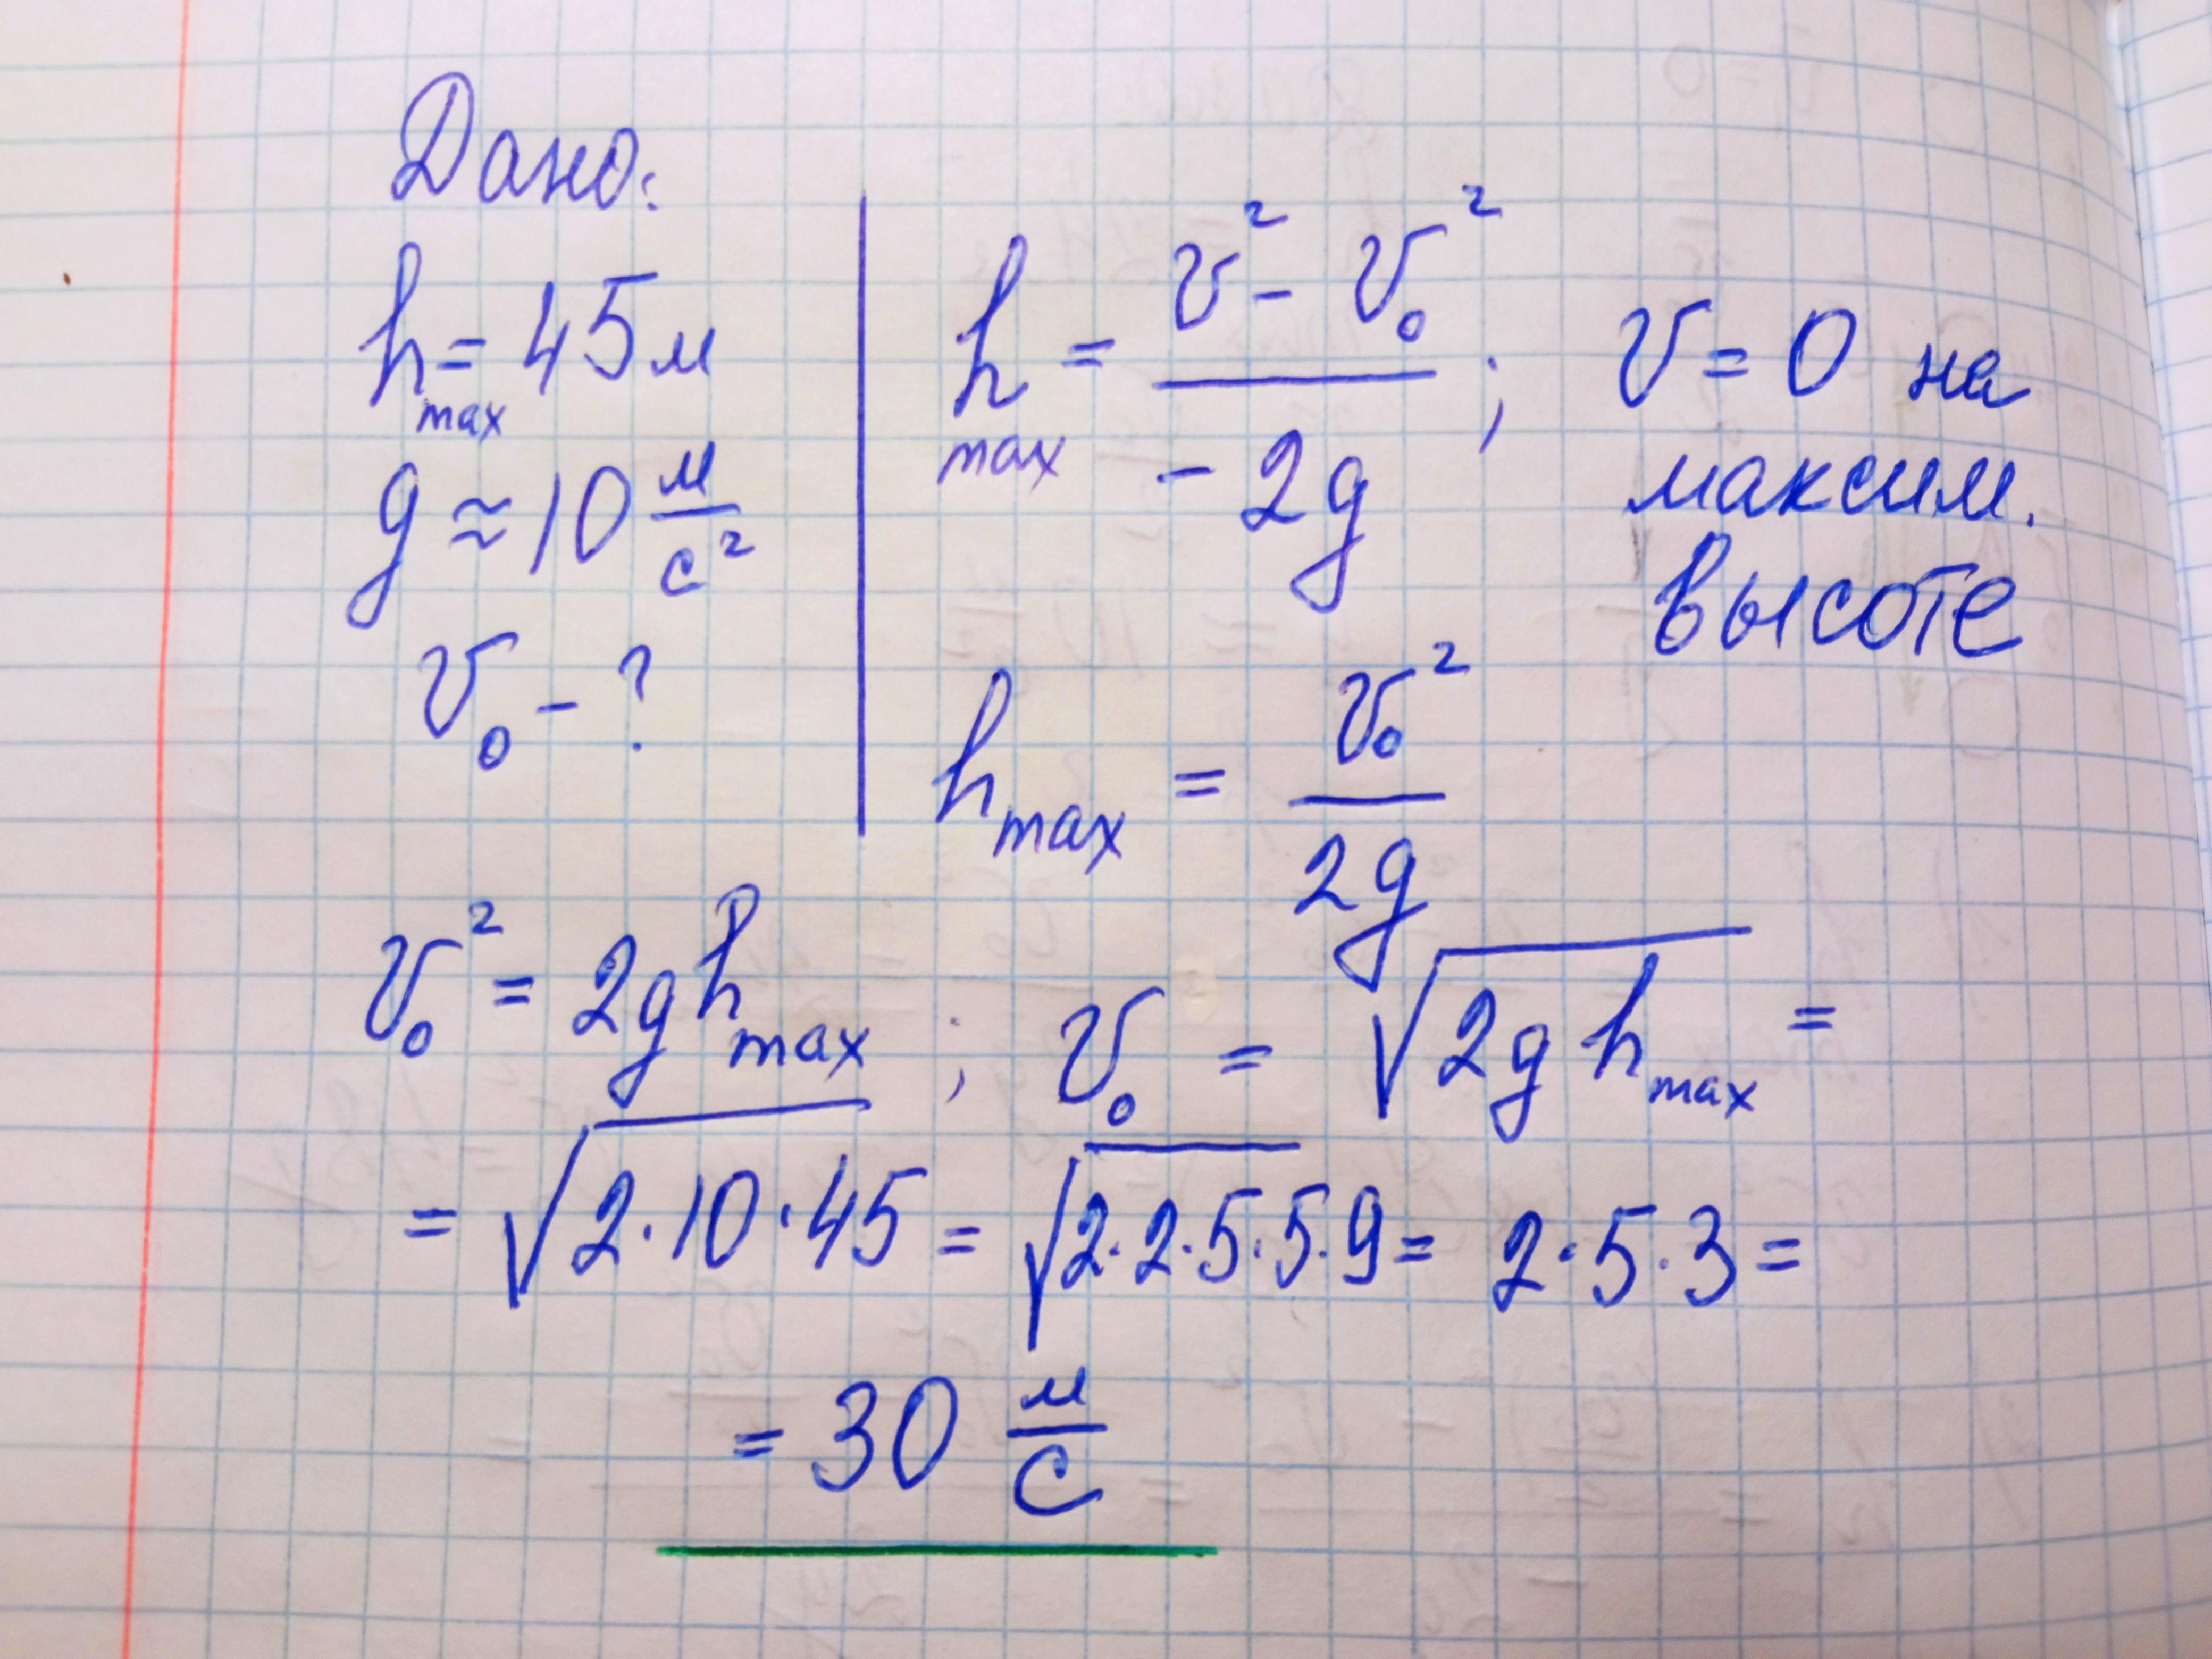 Дано:
h max = 45 м
g ≈ 10 м/с²
v₀ - ?
h max = (v² - v₀²)/(-2g) ; v = 0 на
максим.
высоте
h max = v₀²/2g
v₀² = 2gh max ; v₀ = √(2g h max) =
= √(2·10·45) = √(2·2·5·5·9) = 2·5·3 =
= 30 м/с